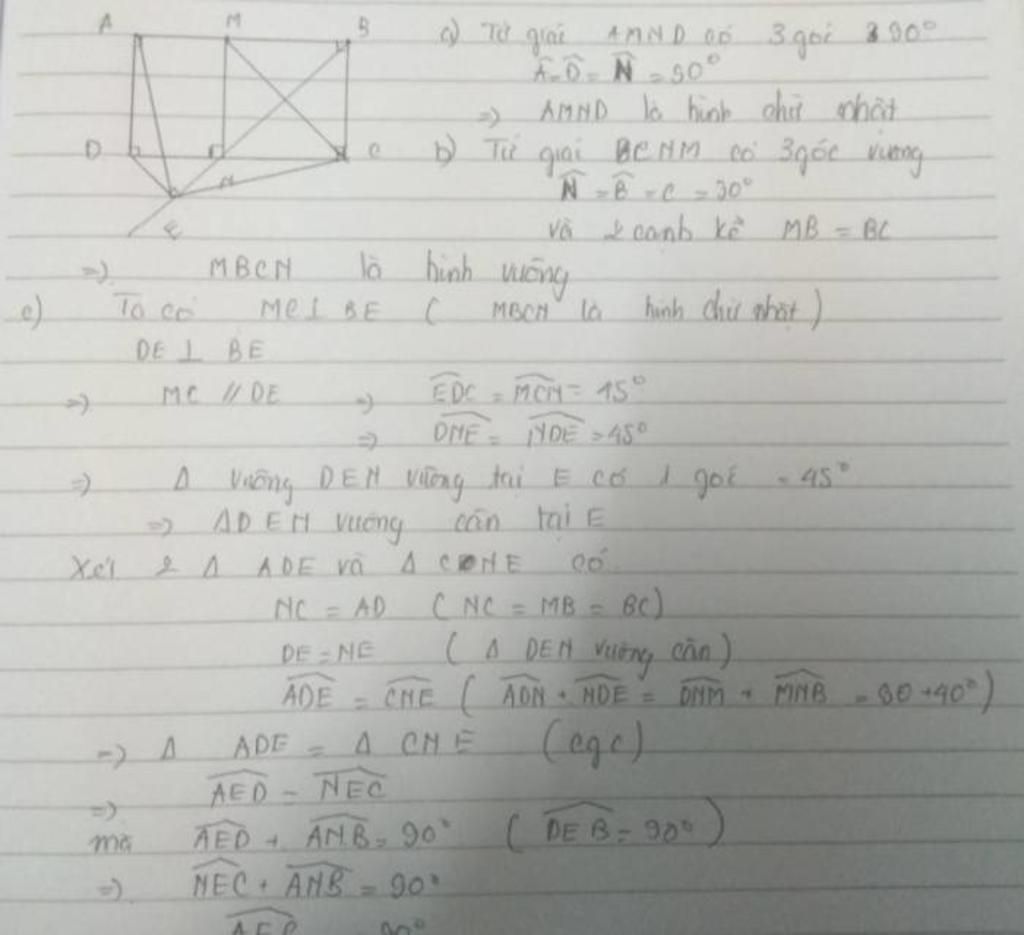 A M B
D N C
E
a) Tứ giác AMND có 3 góc 90°
Â = D̂ = N̂ = 90°
=) AMND là hình chữ nhật
b) Tứ giác BCNM có 3 góc vuông
N̂ = B̂ = C = 90°
và 2 cạnh kề MB = BC
=) MBCN là hình vuông
c) Ta có MC ⊥ BE ( MBCN là hình chữ nhật )
DE ⊥ BE
=) MC // DE =) EDC = MCN = 45°
=) DNE = NDE = 45°
=) Δ vuông DEN vuông tại E có 1 góc = 45°
=) ΔDEN vuông cân tại E
Xét 2 Δ ADE và Δ CNE có
NC = AD ( NC = MB = BC )
DE = NE ( Δ DEN vuông cân )
ADE = CNE ( ADN + NDE = DNM + MNB = 90 + 40° )
=) Δ ADE = Δ CNE (cgc)
=) AED = NEC
mà AED + ANB = 90° ( DEB = 90° )
=) NEC + ANB = 90°